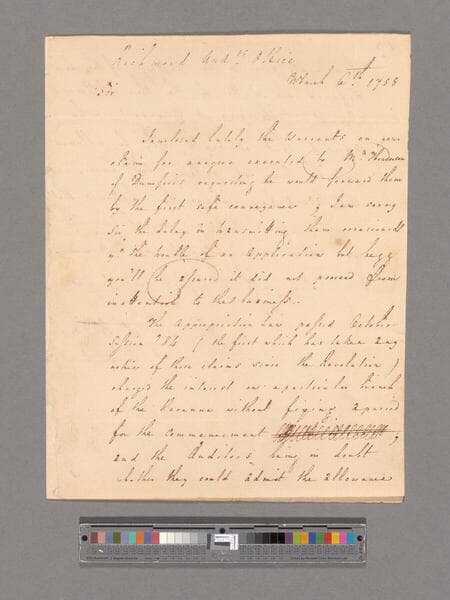 Richmond Audrs Office
March 6th 1788
Sir
I enclosed lately the Warrants on your
claim for executed to Mr Henderson
of Dumfries requesting he would forward them
by the first safe conveyance; I am sorry
for the delay in transmitting them occasioned
yo the trouble of an Application but beg
you'll be assured it did not proceed from
inattention to the business.
The Appropriation Law passed October
Session 784 (the first which has taken any
notice of those claims since the Revolution)
charged the interest on a particular branch
of the Revenue without fixing a period
for the commencement
and the Auditors being in doubt
whether they could admit the allowance